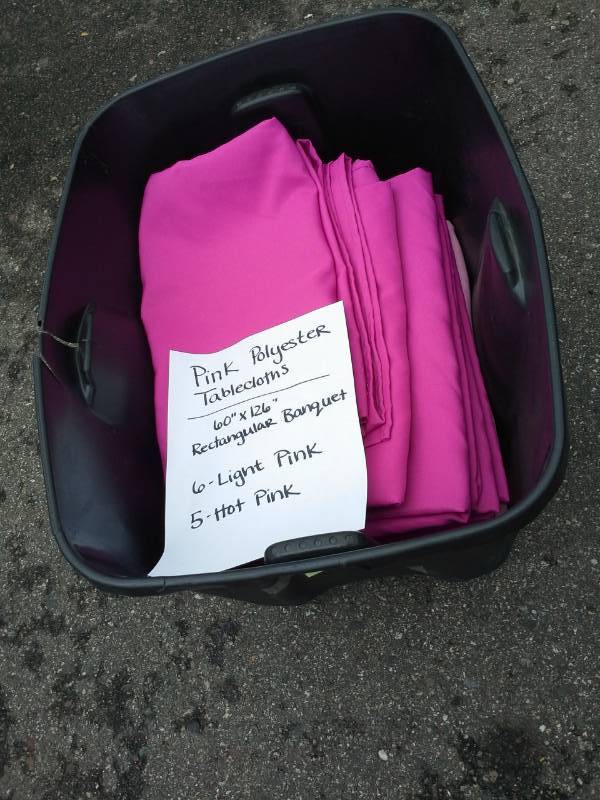 Pink Polyester
Tablecloths
60" x 126"
Rectangular Banquet
6-Light Pink
5-Hot Pink